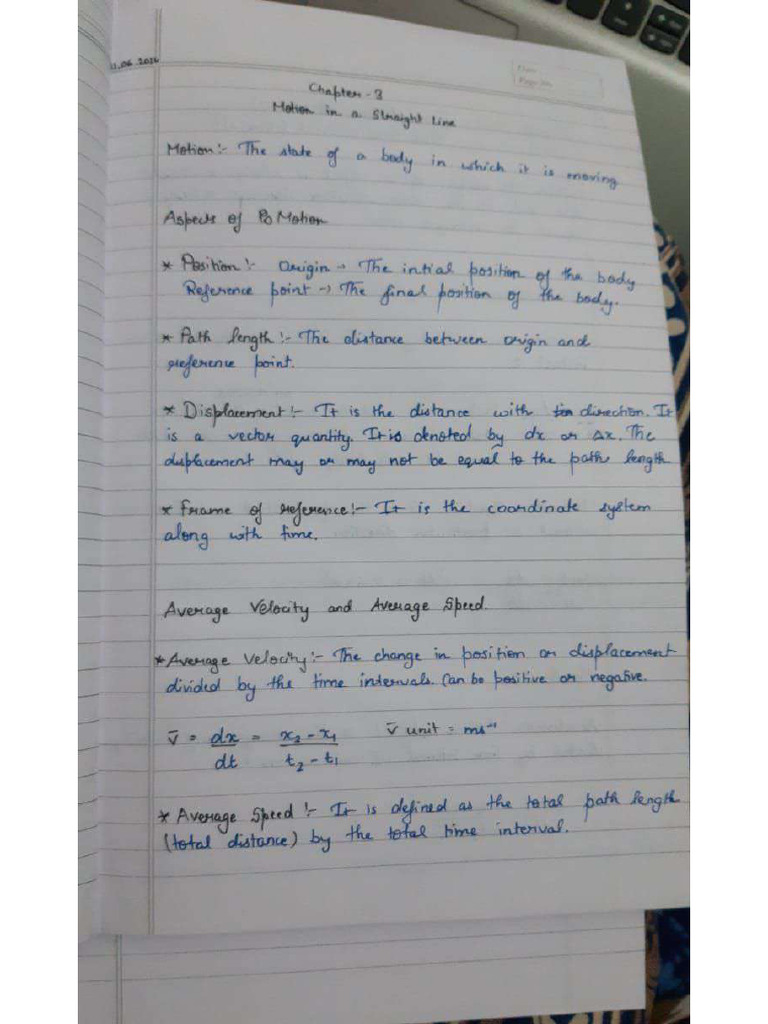 11.06.2026
Chapter - 3
Motion in a Straight Line
Motion :- The state of a body in which it is moving
Aspects of Motion
* Position :- Origin → The intial position of the body
Reference point → The final position of the body.
* Path length :- The distance between origin and
reference point.
* Displacement :- It is the distance with direction. It
is a vector quantity. It is denoted by dx or Δx. The
displacement may or may not be equal to the path length
* Frame of reference :- It is the coordinate system
along with time.
Average Velocity and Average Speed.
* Average Velocity :- The change in position or displacement
divided by the time intervals. Can be positive or negative.
v̄ = dx/dt = x₂ - x₁/t₂ - t₁ v̄ unit = ms⁻¹
* Average Speed :- It is defined as the total path length
(total distance) by the total time interval.